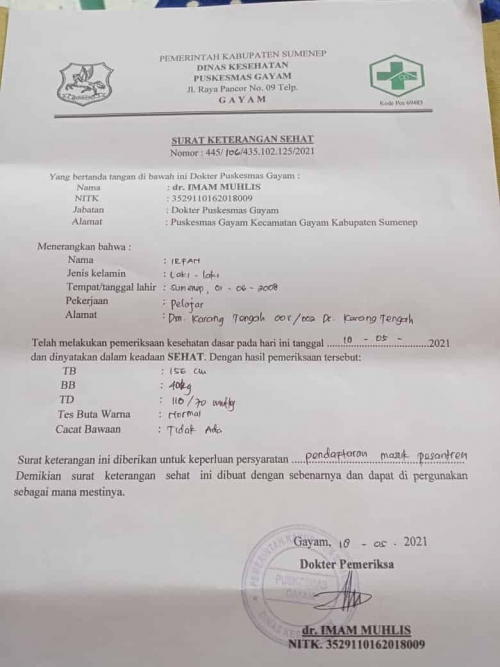 PEMERINTAH KABUPATEN SUMENEP
DINAS KESEHATAN
PUSKESMAS GAYAM
Jl. Raya Pancor No. 09 Telp.
G A Y A M
Kode Pos 69483
SURAT KETERANGAN SEHAT
Nomor : 445/ 106/435.102.125/2021
Yang bertanda tangan di bawah ini Dokter Puskesmas Gayam :
Nama : dr. IMAM MUHLIS
NITK : 3529110162018009
Jabatan : Dokter Puskesmas Gayam
Alamat : Puskesmas Gayam Kecamatan Gayam Kabupaten Sumenep
Menerangkan bahwa :
Nama : IRFAN
Jenis kelamin : Laki - laki
Tempat/tanggal lahir : Sumenep, 01 - 06 - 2008
Pekerjaan : Pelajar
Alamat : Dsn. Karang Tengah 001/002 Ds. Karang Tengah
Telah melakukan pemeriksaan kesehatan dasar pada hari ini tanggal ....18 - 05 - ....2021
dan dinyatakan dalam keadaan SEHAT. Dengan hasil pemeriksaan tersebut:
TB : 156 cm
BB : 40kg
TD : 110/70 mmHg
Tes Buta Warna : Normal
Cacat Bawaan : Tidak Ada
Surat keterangan ini diberikan untuk keperluan persyaratan ....pendaptaran masuk pesantren
Demikian surat keterangan sehat ini dibuat dengan sebenarnya dan dapat di pergunakan
sebagai mana mestinya.
Gayam, 18 - 05 - 2021
Dokter Pemeriksa
PUSKESMAS
GAYAM
dr. IMAM MUHLIS
NITK. 3529110162018009